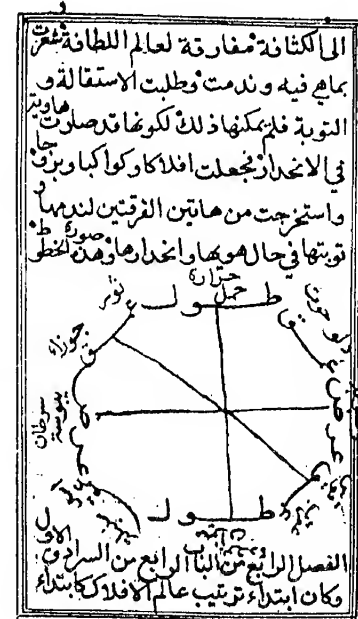 الى الكثافة مفارقة لعالم اللطافة شعرت
بما هي فيه وندمت وطلبت الاستقالة و
التوبة فلم يمكنها ذلك لكونها قد صارت هاوية
في الانحدار فجعلت افلاكا وكواكبا وبروجا
واستخرجت من هاتين الفرقتين لندمها و
توبتها في حال هويها وانحدارها وهذه صورة الخطوط
حرارة
حمل
ثور
طول
دلو حوت
جوزاء
عرض
سرطان
يبوسة
عرض
طول
الفصل الرابع من الباب الرابع من السرادق الاول
وكان ابتداء ترتيب عالم الافلاك كابتداء